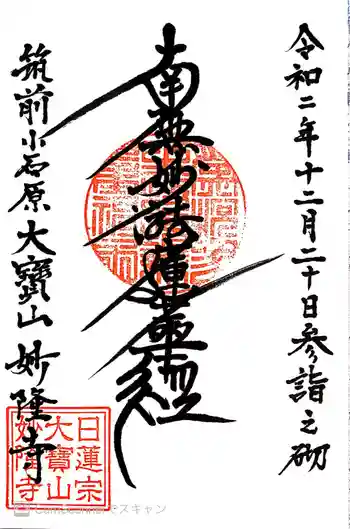 令和二年十二月二十日参詣之砌
南無妙法蓮華経
筑前小石原大寶山妙隆寺
日蓮宗
大寶山
妙隆寺
でスキャン